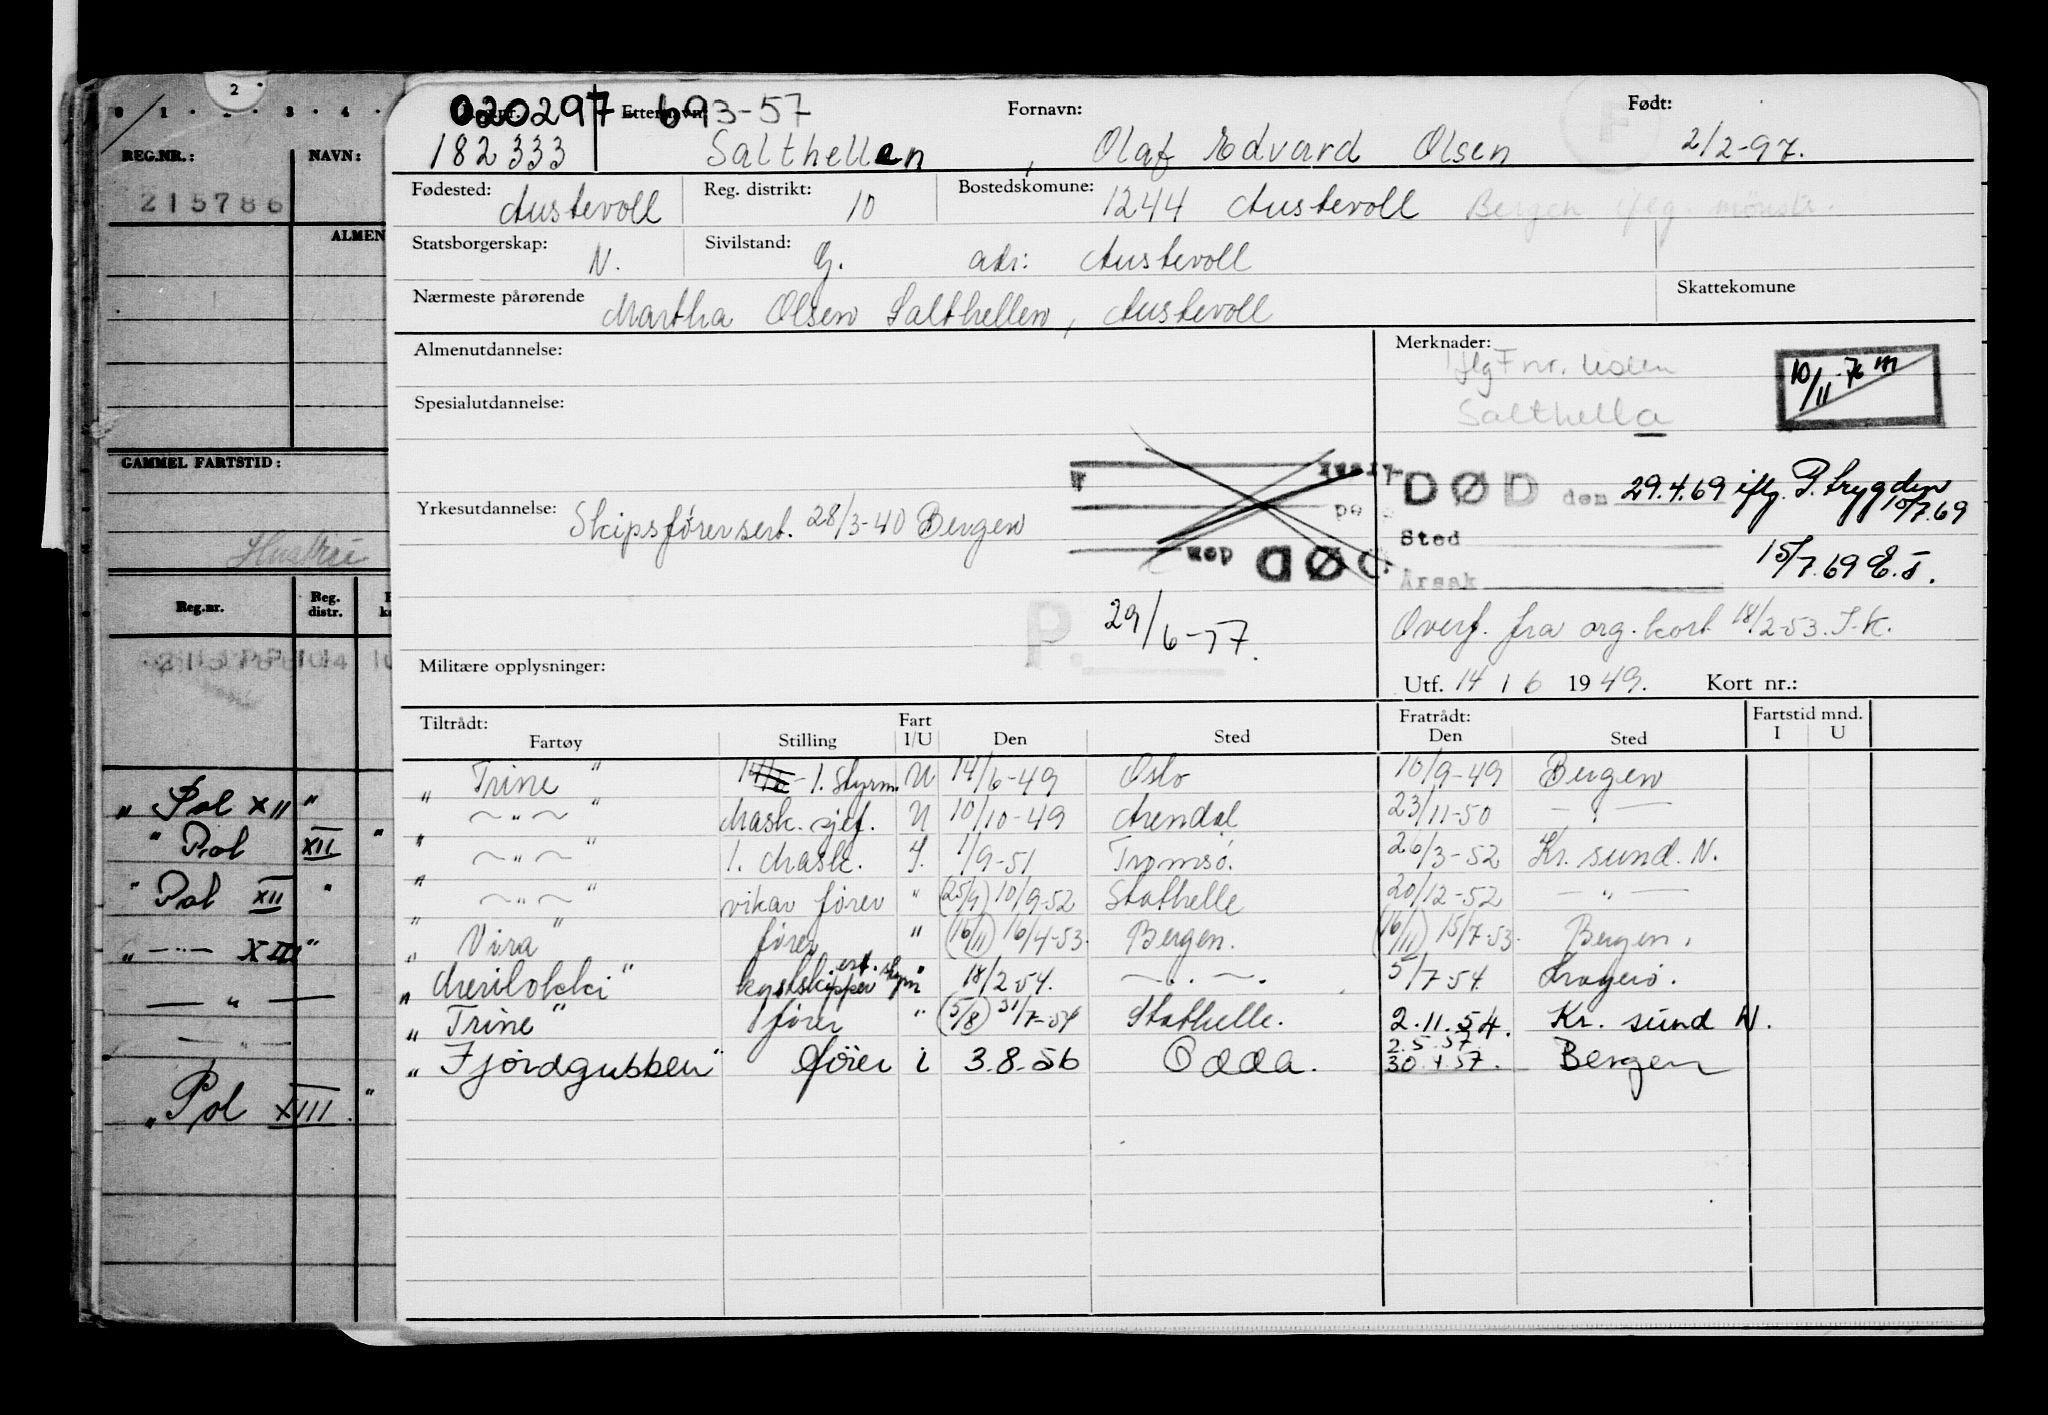 2
0 1 . . 3 . 4 .
REG.NR.: NAVN:
215786
ALMEN
GAMMEL FARTSTID:
Hustru
Reg.nr. Reg. distr.
" Pol XII "
" Pol XII "
" Pol XII "
" — " — XIII "
— " —
— " —
" Pol XIII. "
020297 693-57
Etternavn: Fornavn: Født:
182333 Salthellen, Olaf Edvard Olsen 2/2-97.
Fødested: Austevoll Reg. distrikt: 10 Bostedskomune: 1244 Austevoll Bergen iflg mønstr.
Statsborgerskap: N. Sivilstand: G. adr: Austevoll
Nærmeste pårørende Martha Olsen Salthellen, Austevoll Skattekomune
Almenutdannelse: Merknader:
Iflg Fnr. 10/11-76 m
Spesialutdannelse: Salthella
DØD den 29.4.69 iflg. P. trygden 15/7.69
Yrkesutdannelse: Skipsførersert. 28/3-40 Bergen
Sted
DØD den
Årsak 15/7.69 E.T.
P. 29/6-77. Overf. fra org. kort 18/2-53. J.K.
Militære opplysninger: Utf. 14 / 6 1949. Kort nr.:
Tiltrådt: Fart Fratrådt: Fartstid mnd.
Fartøy Stilling I/U Den Sted Den Sted I U
" Trine " 1. Styrm. U 14/6-49 Oslo 10/9-49 Bergen
" ~ " ~ " Mask. sjef. U 10/10-49 Arendal 23/11-50 — " —
" ~ " ~ " 1. Mask. I. 1/9-51 Tromsø. 26/3-52 Kr. sund. N.
" ~ " ~ " vikar fører " (25/9) 10/9-52 Stathelle 20/12-52 — " —
" Vira " fører " (16/11) 16/4-53. Bergen. (16/11) 15/7-53. Bergen.
" Merilokki " kystskipper est. styrm " 18/2-54. ~ . ~ . 5/7-54. Kragerø.
" Trine " fører " (5/8) 31/7-54 Stathelle. 2.11.54. Kr. sund N.
2.5.57
" Fjordgubben " fører i 3.8.56 Odda. 30.4.57. Bergen